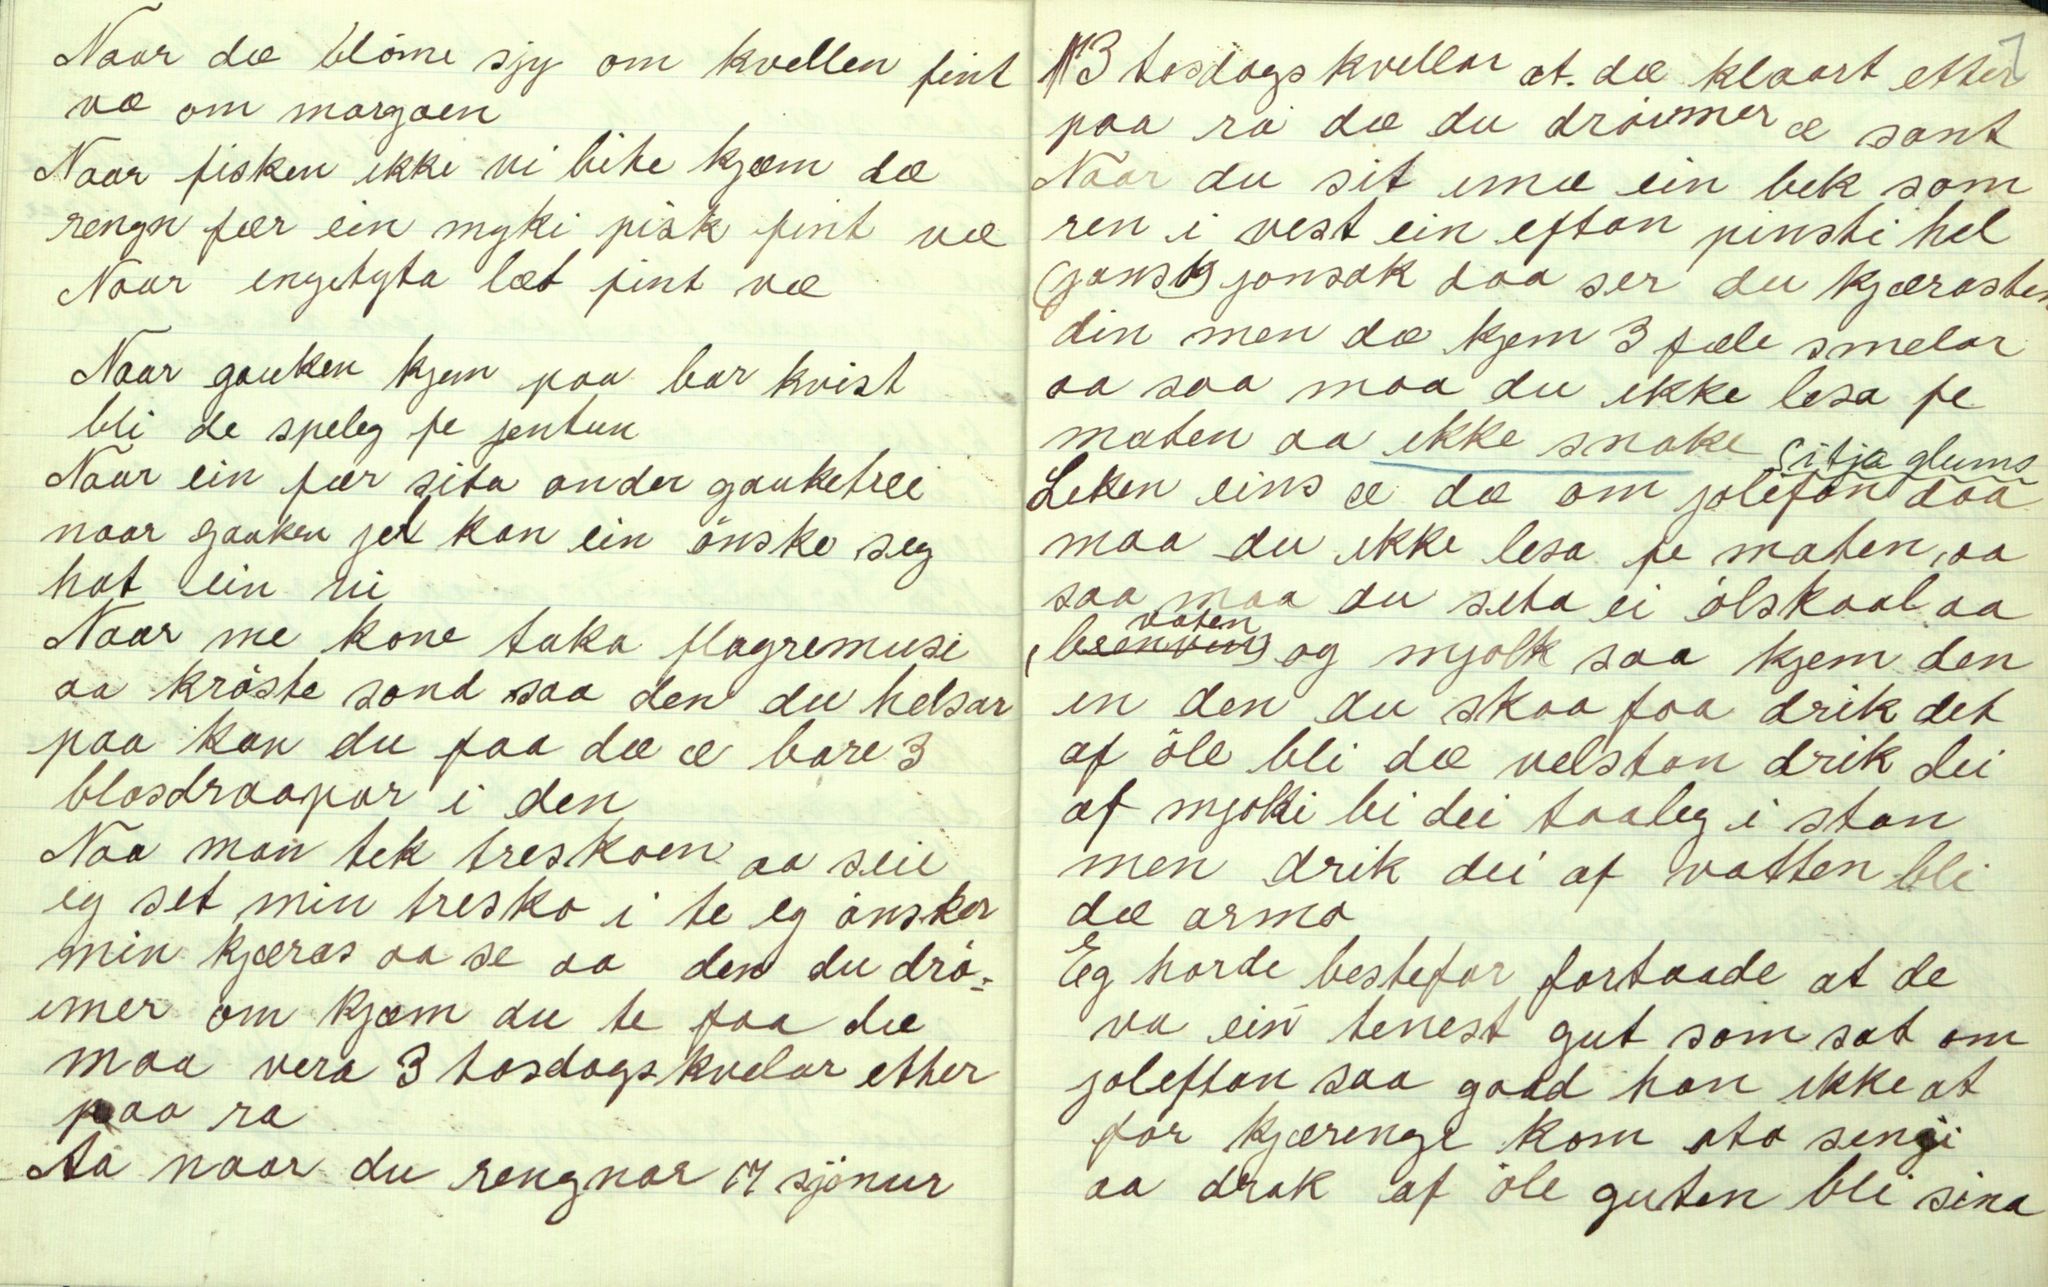 Naar dæ blóme sjy om kvellen fint
væ om margaen
Naar fisken ikke vi bite kjæm dæ
rengn fær ein myki fisk fint væ
Naar engetyta læt fint væ
Naar gauken kjem paa bar kvist
bli de speleg fe jentun
Naar ein fær sita onder gauketree
naar gauken jel kan ein ónske seg
hot ein vi
Naar me kone taka flagremusi
aa króste sond saa den du helsar
paa kan du faa dæ æ bare 3
blosdraapar i den
Naa man tek treskoen aa seie
eg set min tresko i te eg ónsker
min kjæras aa se aa den du dró=
imer om kjæm du te faa dæ
maa vera 3 tosdagskvelar etter
paa ra
Aa naar du rengnar 17 sjónur
i 3 tosdagskvellar at dæ klaart etter
paa ra dæ du dróimer æ sant
Naar du sit imæ ein bek som
ren i vest ein eftan pinsti hel
(jonsn) jonsok daa ser du kjærasten
din men dæ kjem 3 fæle smelar
aa saa maa du ikke lesa fe
maten aa ikke snake sitja glums
Leken eins æ dæ om jolefan daa
maa du ikke lesa fe maten, aa
saa maa du seta ei ólskaal aa
vaten
(brenvin) og mjolk saa kjem den
en den du skaa faa drik det
af óle bli dæ velstan drik dei
af mjolki bi dei taaleg i stan
men drik dei af vatten bli
dæ armo
Eg horde bestefar fortaade at de
va ein tenest gut som sat om
joleftan saa gaad han ikke at
for kjærenge kom ato sengji
aa drak af óle guten bli sina